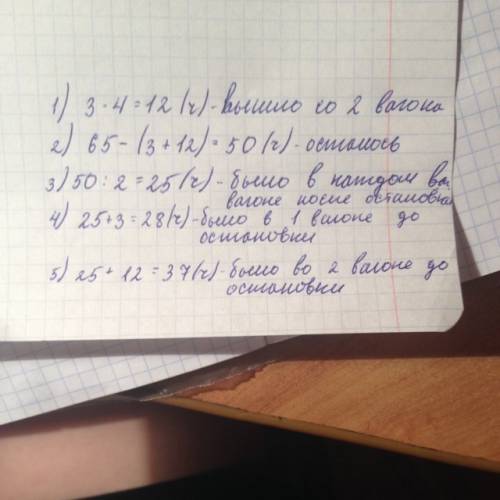 1) 3 · 4 = 12 (ч) - вышло со 2 вагона
2) 65 - (3 + 12) = 50 (ч) - осталось
3) 50 : 2 = 25 (ч) - было в каждом ва-
вагоне после остановки
4) 25 + 3 = 28 (ч) - было в 1 вагоне до
остановки
5) 25 + 12 = 37 (ч) - было во 2 вагоне до
остановки